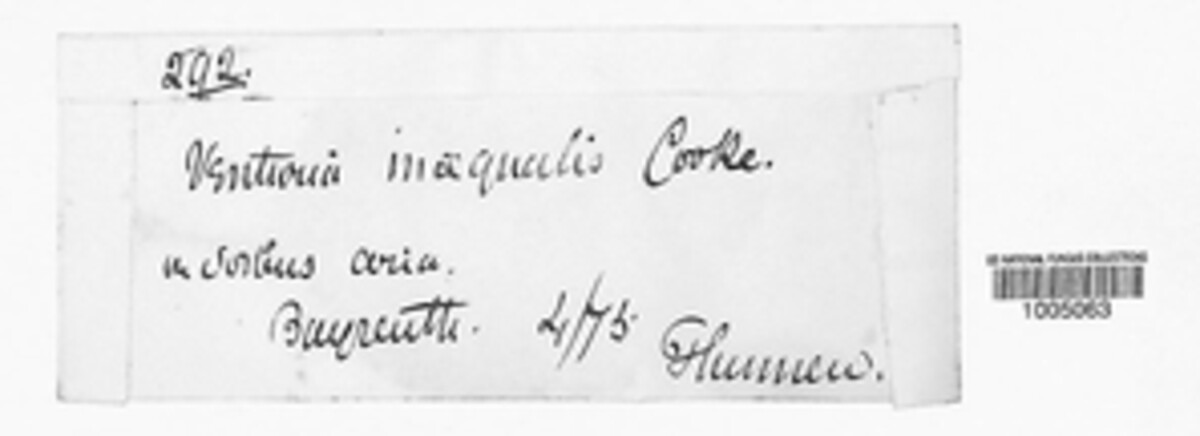 292.
Venturia inæqualis Cooke.
in Sorbus aria.
Bayreuth. 4/75
Thümen.
US NATIONAL FUNGUS COLLECTIONS
1005063